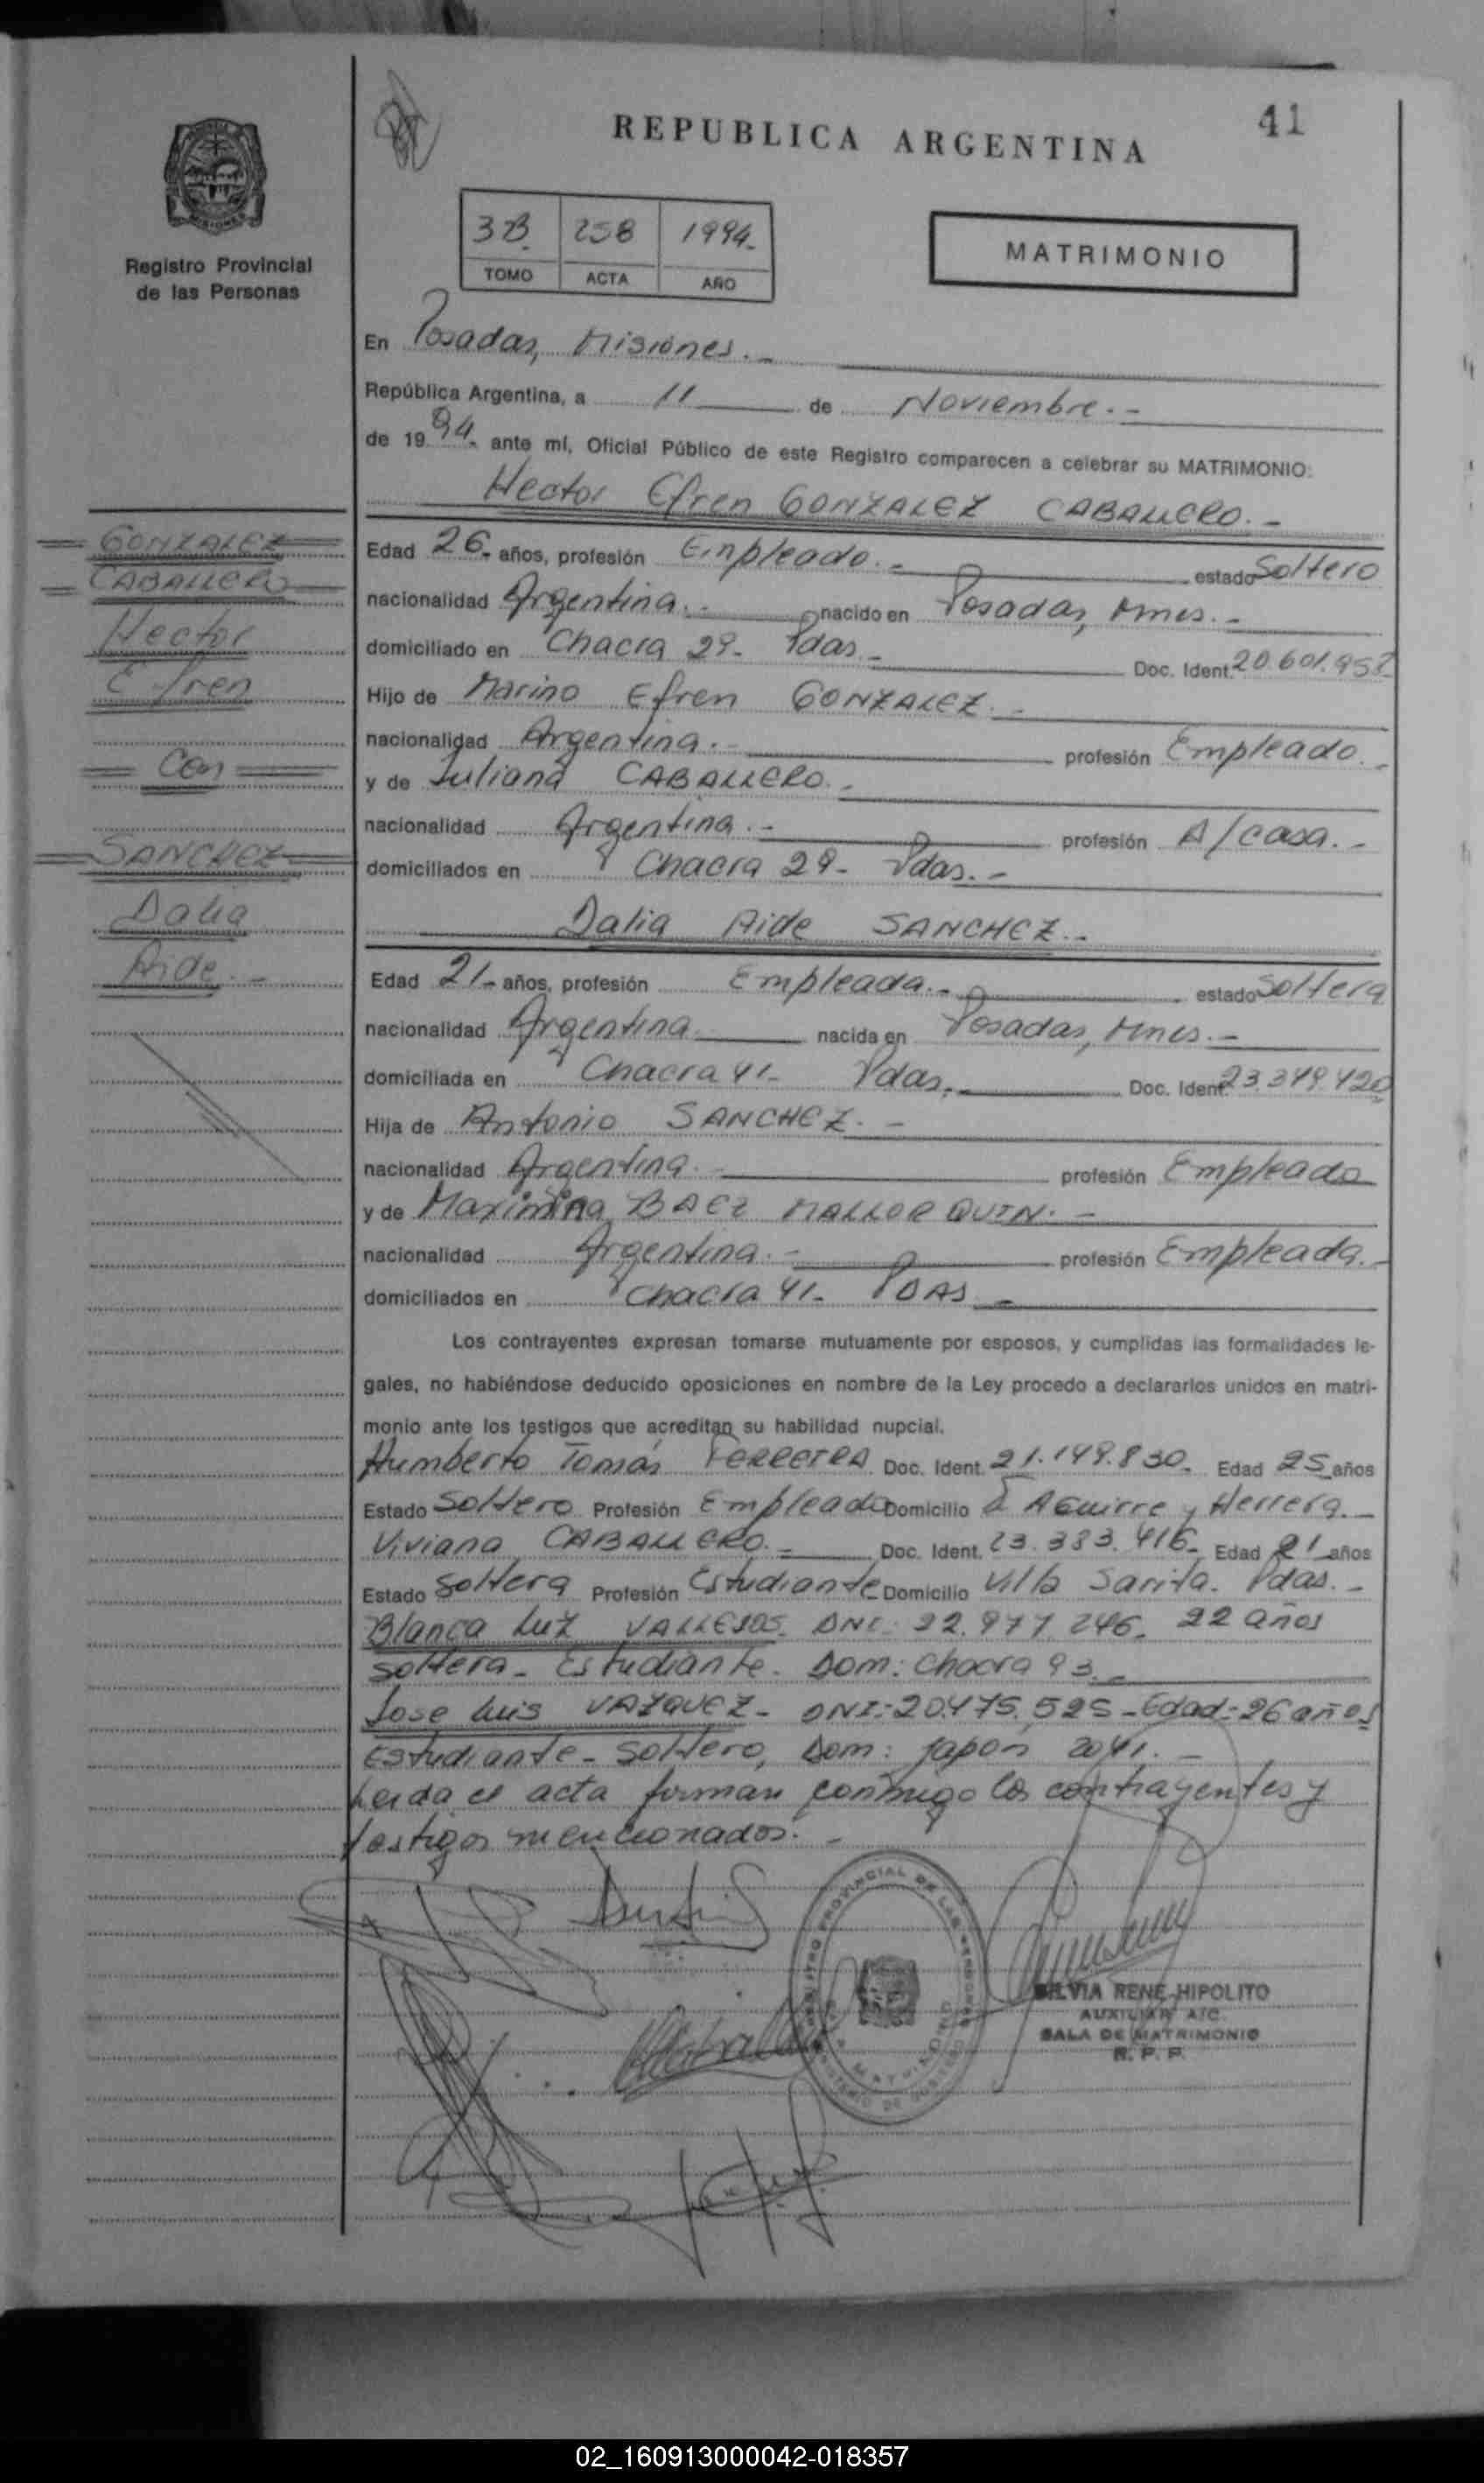 41
REPUBLICA ARGENTINA
Registro Provincial
de las Personas
3B. 258 1994.-
TOMO ACTA AÑO
MATRIMONIO
En Posadas, Misiones.-
República Argentina, a 11 de Noviembre.-
de 1994.- ante mí, Oficial Público de este Registro comparecen a celebrar su MATRIMONIO:
Hector Efren GONZALEZ CABALLERO.-
GONZALEZ
CABALLERO
Hector
Efren
Con
SANCHEZ
Dalia
Aide.-
Edad 26.- años, profesión Empleado.- estado Soltero
nacionalidad Argentina.- nacido en Posadas, Mnes.-
domiciliado en Chacra 29- Pdas.- Doc. Ident. 20.601.952
Hijo de Marino Efren GONZALEZ.-
nacionalidad Argentina.- profesión Empleado.-
y de Juliana CABALLERO.-
nacionalidad Argentina.- profesión A/casa.-
domiciliados en Chacra 29- Pdas.-
Dalia Aide SANCHEZ.-
Edad 21- años, profesión Empleada.- estado Soltera
nacionalidad Argentina nacida en Posadas, Mnes.-
domiciliada en Chacra 41- Pdas.- Doc. Ident. 23.379.420
Hija de Antonio SANCHEZ.-
nacionalidad Argentina.- profesión Empleado
y de Maximina BAEZ MALLORQUIN.-
nacionalidad Argentina.- profesión Empleada.-
domiciliados en Chacra 41- PDAS.-
Los contrayentes expresan tomarse mutuamente por esposos, y cumplidas las formalidades le-
gales, no habiéndose deducido oposiciones en nombre de la Ley procedo a declararlos unidos en matri-
monio ante los testigos que acreditan su habilidad nupcial.
Humberto Tomás FERREIRA Doc. Ident. 21.149.830- Edad 25 años
Estado Soltero Profesión Empleado Domicilio Aguirre y Herrera.-
Viviana CABALLERO.- Doc. Ident. 23.383.416- Edad 21 años
Estado Soltera Profesión Estudiante Domicilio Villa Sarita. Pdas.-
Blanca Luz VALLEJOS- DNI- 22.977.246- 22 años
soltera- Estudiante- Dom: Chacra 93.-
Jose Luis VAZQUEZ- DNI:-20.475.525-Edad:-26 años
Estudiante- Soltero, Dom: Japon 2041.-
Leida el acta firman conmigo los contrayentes y
testigos mencionados.-
REGISTRO PROVINCIAL DE LAS PERSONAS
SILVIA RENE HIPOLITO
AUXILIAR A/C.
SALA DE MATRIMONIO
R. P. P.
02_160913000042-018357